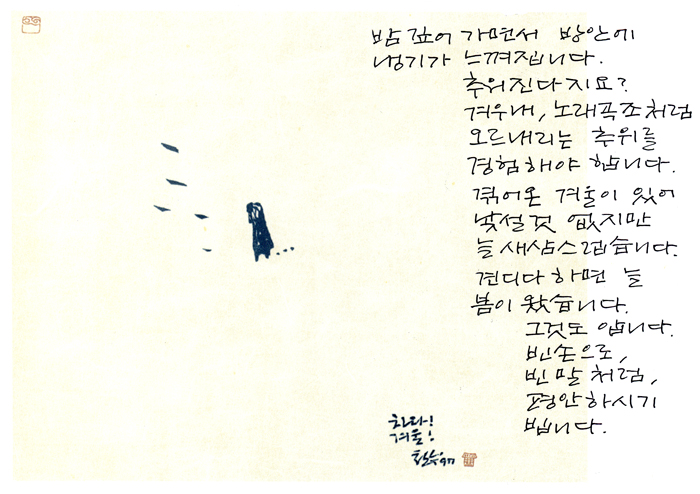 밤 깊어 가면서 방안에
냉기가 느껴집니다.
추워진다지요?
겨우내, 노래곡조처럼
오르내리는 추위를
경험해야 합니다.
겪어온 겨울이 있어
낯설 것 없지만
늘 새삼스럽습니다.
견디다 하면 늘
봄이 왔습니다.
그것도 압니다.
빈손으로,
빈 말처럼,
평안하시기
빕니다.
차다!
겨울!
철수 97